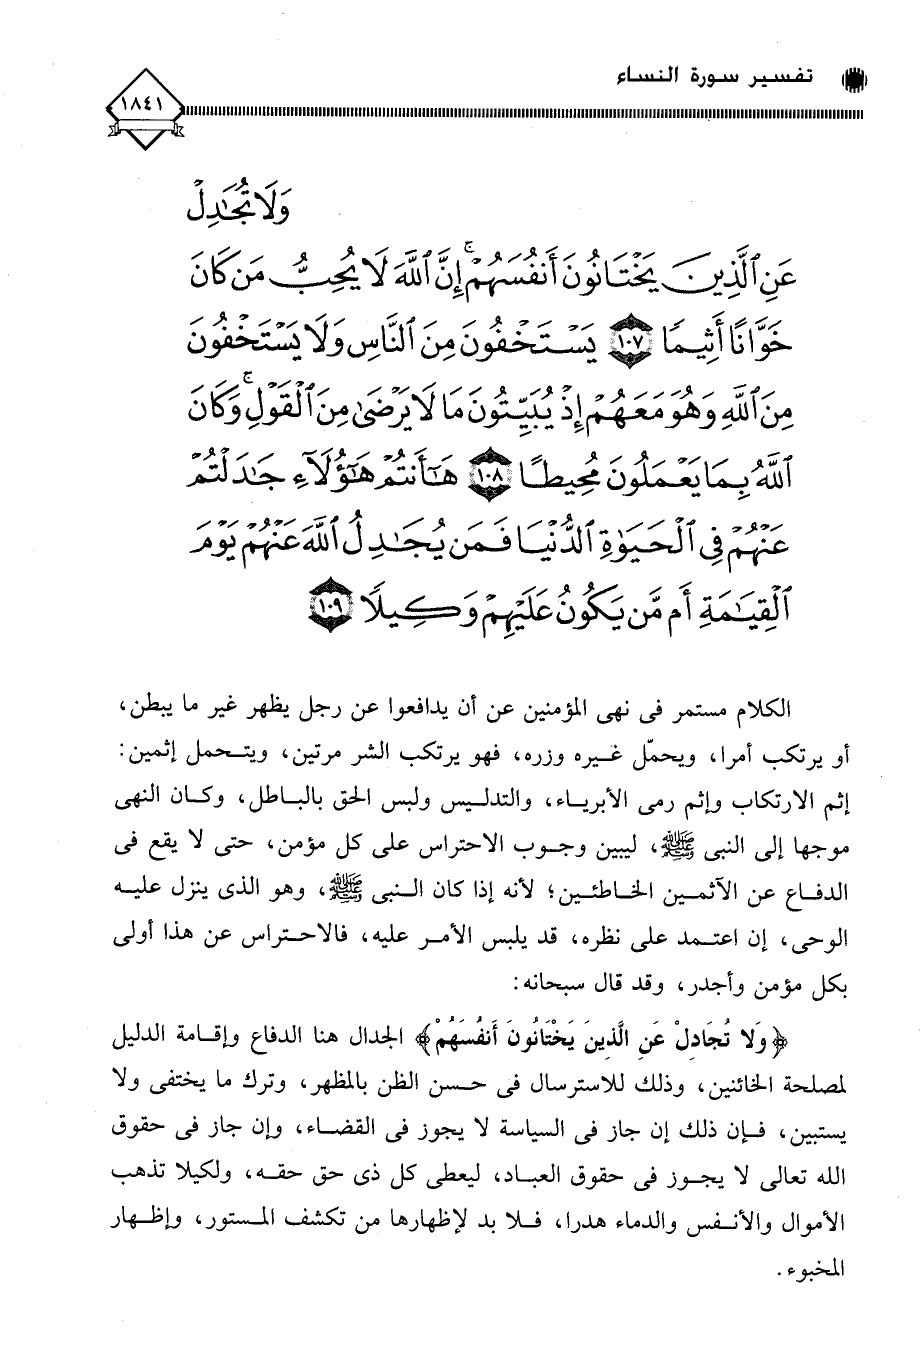 تفسير سورة النساء
١٨٤١
وَلَا تُجَٰدِلْ
عَنِ ٱلَّذِينَ يَخْتَانُونَ أَنفُسَهُمْ ۚ إِنَّ ٱللَّهَ لَا يُحِبُّ مَن كَانَ
خَوَّانًا أَثِيمًا ١٠٧ يَسْتَخْفُونَ مِنَ ٱلنَّاسِ وَلَا يَسْتَخْفُونَ
مِنَ ٱللَّهِ وَهُوَ مَعَهُمْ إِذْ يُبَيِّتُونَ مَا لَا يَرْضَىٰ مِنَ ٱلْقَوْلِ ۚ وَكَانَ
ٱللَّهُ بِمَا يَعْمَلُونَ مُحِيطًا ١٠٨ هَٰٓأَنتُمْ هَٰٓؤُلَآءِ جَٰدَلْتُمْ
عَنْهُمْ فِى ٱلْحَيَوٰةِ ٱلدُّنْيَا فَمَن يُجَٰدِلُ ٱللَّهَ عَنْهُمْ يَوْمَ
ٱلْقِيَٰمَةِ أَم مَّن يَكُونُ عَلَيْهِمْ وَكِيلًا ١٠٩
الكلام مستمر فى نهى المؤمنين عن أن يدافعوا عن رجل يظهر غير ما يبطن،
أو يرتكب أمرا، ويحمّل غيره وزره، فهو يرتكب الشر مرتين، ويتحمل إثمين:
إثم الارتكاب وإثم رمى الأبرياء، والتدليس ولبس الحق بالباطل، وكان النهى
موجها إلى النبى ﷺ، ليبين وجوب الاحتراس على كل مؤمن، حتى لا يقع فى
الدفاع عن الآثمين الخاطئين؛ لأنه إذا كان النبى ﷺ، وهو الذى ينزل عليه
الوحى، إن اعتمد على نظره، قد يلبس الأمر عليه، فالاحتراس عن هذا أولى
بكل مؤمن وأجدر، وقد قال سبحانه:
﴿وَلا تُجَادِلْ عَنِ الَّذِينَ يَخْتَانُونَ أَنفُسَهُمْ﴾ الجدال هنا الدفاع وإقامة الدليل
لمصلحة الخائنين، وذلك للاسترسال فى حسن الظن بالمظهر، وترك ما يختفى ولا
يستبين، فإن ذلك إن جاز فى السياسة لا يجوز فى القضاء، وإن جاز فى حقوق
الله تعالى لا يجوز فى حقوق العباد، ليعطى كل ذى حق حقه، ولكيلا تذهب
الأموال والأنفس والدماء هدرا، فلا بد لإظهارها من تكشف المستور، وإظهار
المخبوء.